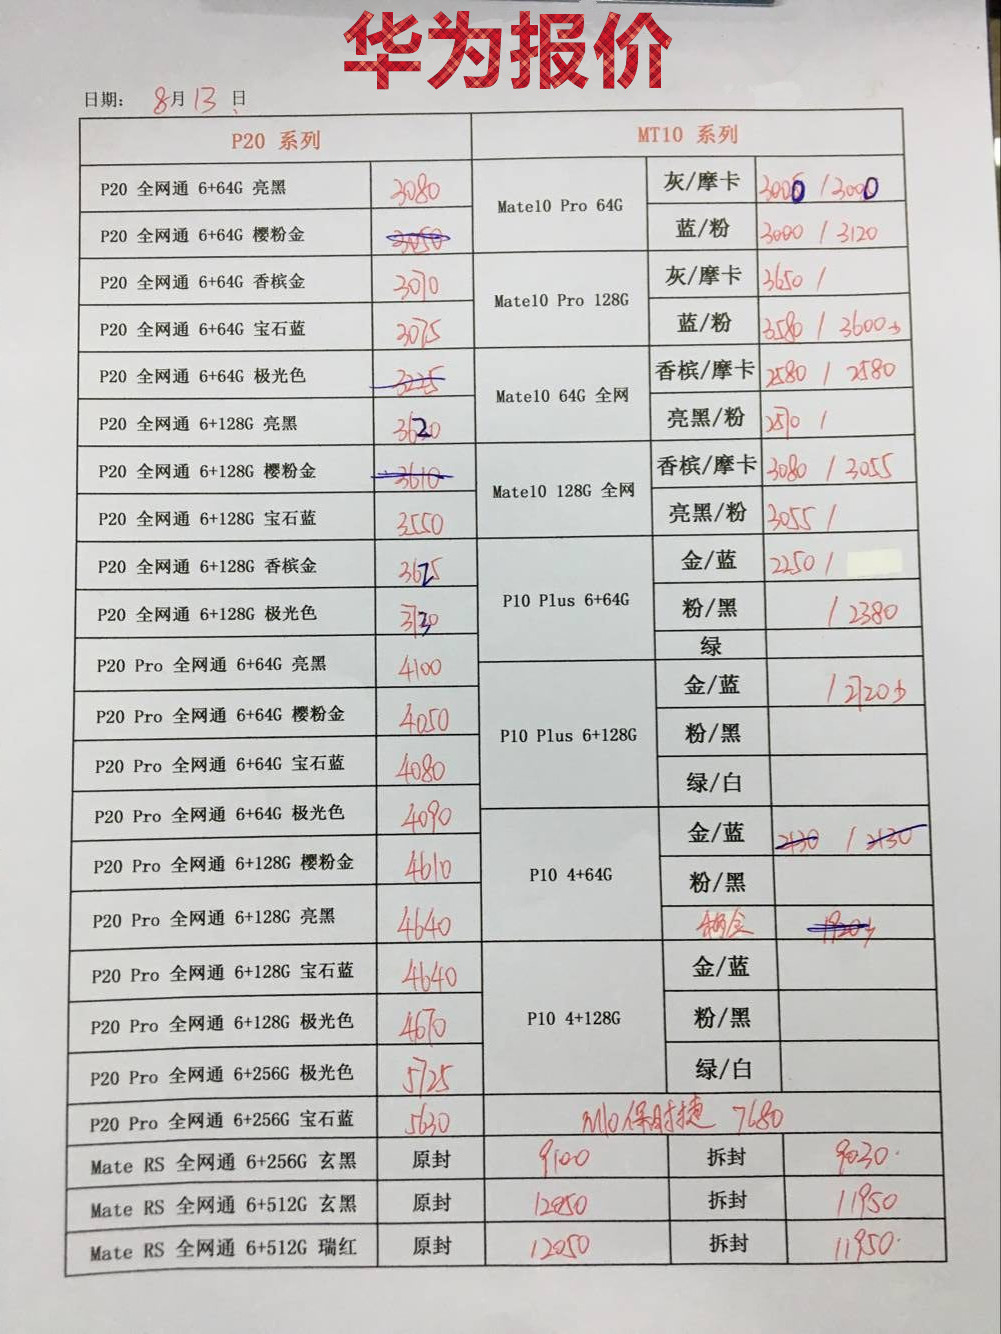 华为报价
日期： 8月13日
P20 系列 MT10 系列
P20 全网通 6+64G 亮黑 3080
P20 全网通 6+64G 樱粉金 3050
P20 全网通 6+64G 香槟金 3070
P20 全网通 6+64G 宝石蓝 3075
P20 全网通 6+64G 极光色 3225
P20 全网通 6+128G 亮黑 3620
P20 全网通 6+128G 樱粉金 3610
P20 全网通 6+128G 宝石蓝 3550
P20 全网通 6+128G 香槟金
P20 全网通 6+128G 极光色
P20 Pro 全网通 6+64G 亮黑 4100
P20 Pro 全网通 6+64G 樱粉金 4050
P20 Pro 全网通 6+64G 宝石蓝 4080
P20 Pro 全网通 6+64G 极光色 4090
P20 Pro 全网通 6+128G 樱粉金 4610
P20 Pro 全网通 6+128G 亮黑 4640
P20 Pro 全网通 6+128G 宝石蓝 4640
P20 Pro 全网通 6+128G 极光色 4670
P20 Pro 全网通 6+256G 极光色 5725
P20 Pro 全网通 6+256G 宝石蓝 5630
Mate10 Pro 64G
灰/摩卡 3000 / 3000
蓝/粉 3000 / 3120
Mate10 Pro 128G
灰/摩卡 3650 /
蓝/粉 3580 / 3600
Mate10 64G 全网
香槟/摩卡 2580 / 2580
亮黑/粉 2570 /
Mate10 128G 全网
香槟/摩卡 3080 / 3055
亮黑/粉 3055 /
P10 Plus 6+64G
金/蓝 2250 /
粉/黑 / 2380
绿
P10 Plus 6+128G
金/蓝 / 2720
粉/黑
绿/白
P10 4+64G
金/蓝 2130 / 2130
粉/黑
1920
P10 4+128G
金/蓝
粉/黑
绿/白
M10保时捷 7680
Mate RS 全网通 6+256G 玄黑 原封 9100 拆封 9030
Mate RS 全网通 6+512G 玄黑 原封 12050 拆封 11950
Mate RS 全网通 6+512G 瑞红 原封 12050 拆封 11950